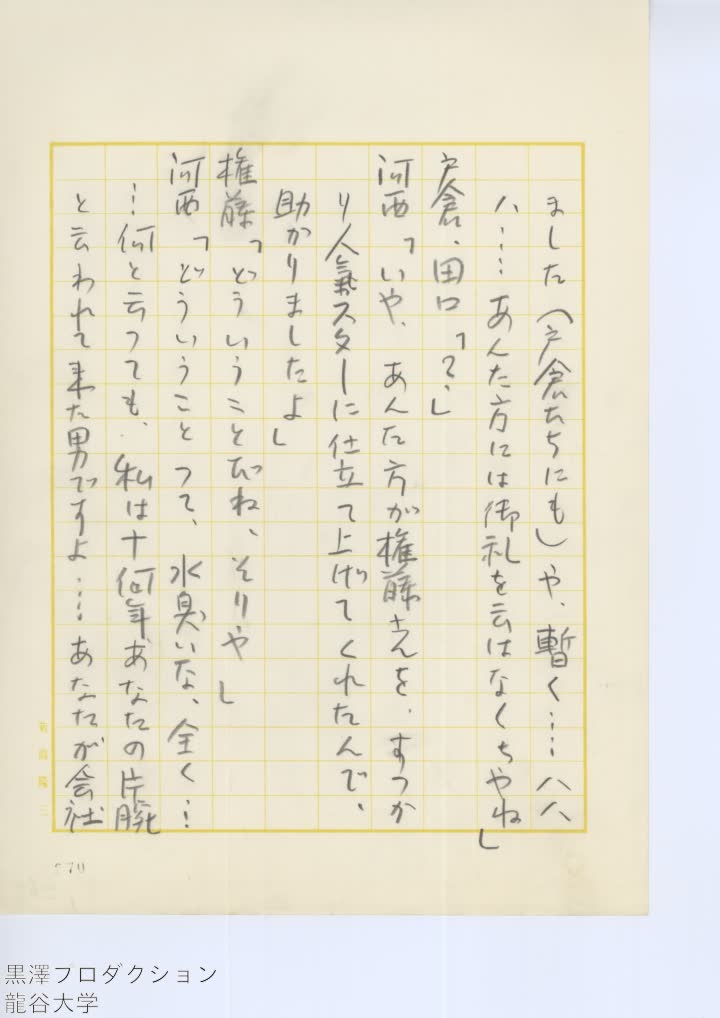 ました（戸倉たちにも）や、暫く……ハハ
ハ……あんた方には御礼を云はなくちやね」
戸倉、田口「？」
河西「いや、あんた方が権藤さんを、すつか
り人氣スターに仕立て上げてくれたんで、
助かりましたよ」
権藤「どういうことだね、そりや」
河西「どういうことつて、水臭いな、全く…
…何と云つても、私は十何年あなたの片腕
と云われて来た男ですよ……あなたが会社
黒澤プロダクション
龍谷大学